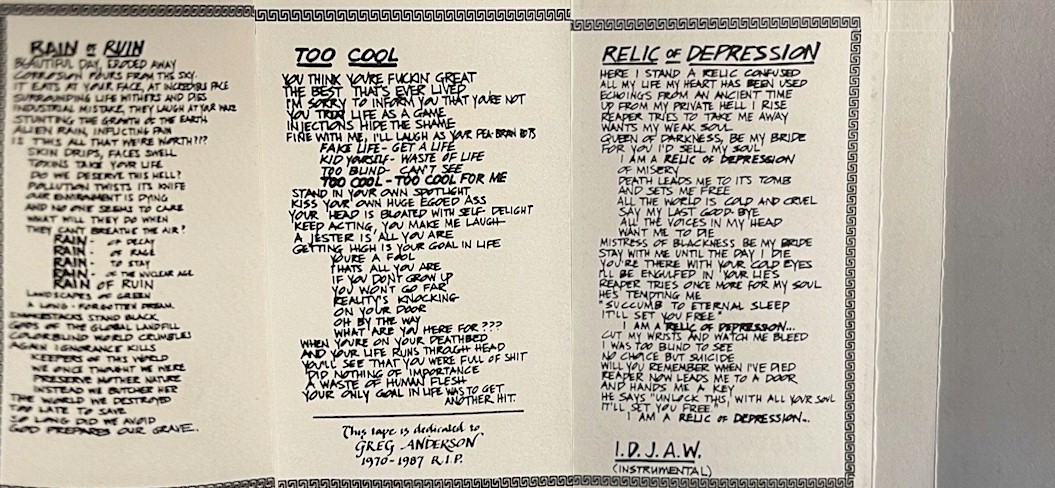 RAIN OF RUIN
BEAUTIFUL DAY, ERODED AWAY
CORROSION POURS FROM THE SKY.
IT EATS AT YOUR FACE, AT INCREDIBLE PACE
SURROUNDING LIFE WITHERS AND DIES
INDUSTRIAL MISTAKE, THEY LAUGH AT YOUR
STUNTING THE GROWTH OF THE EARTH
ALIEN RAIN, INFLICTING PAIN
IS THIS ALL THAT WE'RE WORTH???
SKIN DRIPS, FACES SWELL
TOXINS TAKE YOUR LIFE
DO WE DESERVE THIS HELL?
POLLUTION TWISTS ITS KNIFE
OUR ENVIRONMENT IS DYING
AND NO ONE SEEMS TO CARE
WHAT WILL THEY DO WHEN
THEY CAN'T BREATHE THE AIR?
RAIN - OF DECAY
RAIN - OF RAGE
RAIN - TO STAY
RAIN - OF THE NUCLEAR AGE
RAIN OF RUIN
LANDSCAPES OF GREEN
A LONG - FORGOTTEN DREAM.
SMOKESTACKS STAND BLACK
GODS OF THE GLOBAL LANDFILL
COLORBLIND WORLD CRUMBLES
AGAIN IGNORANCE KILLS
KEEPERS OF THIS WORLD
WE ONCE THOUGHT WE WERE
PRESERVE MOTHER NATURE
INSTEAD WE BUTCHER HER
THE WORLD WE DESTROYED
TOO LATE TO SAVE
SO LONG DID WE AVOID
GOD PREPARES OUR GRAVE.
TOO COOL
YOU THINK YOU'RE FUCKIN' GREAT
THE BEST THAT'S EVER LIVED
I'M SORRY TO INFORM YOU THAT YOU'RE NOT
YOU TREAT LIFE AS A GAME
INJECTIONS HIDE THE SHAME
FINE WITH ME, I'LL LAUGH AS YOUR PEA-BRAIN ROTS
FAKE LIFE - GET A LIFE
KID YOURSELF - WASTE OF LIFE
TOO BLIND - CAN'T SEE
TOO COOL - TOO COOL FOR ME
STAND IN YOUR OWN SPOTLIGHT
KISS YOUR OWN HUGE EGOED ASS
YOUR HEAD IS BLOATED WITH SELF-DELIGHT
KEEP ACTING, YOU MAKE ME LAUGH
A JESTER IS ALL YOU ARE
GETTING HIGH IS YOUR GOAL IN LIFE
YOU'RE A FOOL
THATS ALL YOU ARE
IF YOU DON'T GROW UP
YOU WON'T GO FAR
REALITY'S KNOCKING
ON YOUR DOOR
OH BY THE WAY
WHAT ARE YOU HERE FOR???
WHEN YOU'RE ON YOUR DEATHBED
AND YOUR LIFE RUNS THROUGH HEAD
YOU'LL SEE THAT YOU WERE FULL OF SHIT
DID NOTHING OF IMPORTANCE
A WASTE OF HUMAN FLESH
YOUR ONLY GOAL IN LIFE WAS TO GET
ANOTHER HIT.
This tape is dedicated to
GREG ANDERSON
1970-1987 R.I.P.
RELIC OF DEPRESSION
HERE I STAND A RELIC CONFUSED
ALL MY LIFE MY HEART HAS BEEN USED
ECHOINGS FROM AN ANCIENT TIME
UP FROM MY PRIVATE HELL I RISE
REAPER TRIES TO TAKE ME AWAY
WANTS MY WEAK SOUL
QUEEN OF DARKNESS, BE MY BRIDE
FOR YOU I'D SELL MY SOUL
I AM A RELIC OF DEPRESSION
OF MISERY
DEATH LEADS ME TO ITS TOMB
AND SETS ME FREE
ALL THE WORLD IS COLD AND CRUEL
SAY MY LAST GOOD-BYE
ALL THE VOICES IN MY HEAD
WANT ME TO DIE
MISTRESS OF BLACKNESS BE MY BRIDE
STAY WITH ME UNTIL THE DAY I DIE
YOU'RE THERE WITH YOUR COLD EYES
I'LL BE ENGULFED IN YOUR LIES
REAPER TRIES ONCE MORE FOR MY SOUL
HE'S TEMPTING ME
"SUCCUMB TO ETERNAL SLEEP
IT'LL SET YOU FREE"
I AM A RELIC OF DEPRESSION...
CUT MY WRISTS AND WATCH ME BLEED
I WAS TOO BLIND TO SEE
NO CHOICE BUT SUICIDE
WILL YOU REMEMBER WHEN I'VE DIED
REAPER NOW LEADS ME TO A DOOR
AND HANDS ME A KEY
HE SAYS "UNLOCK THIS, WITH ALL YOUR SOUL
IT'LL SET YOU FREE."
I AM A RELIC OF DEPRESSION...
I.D.J.A.W.
(INSTRUMENTAL)